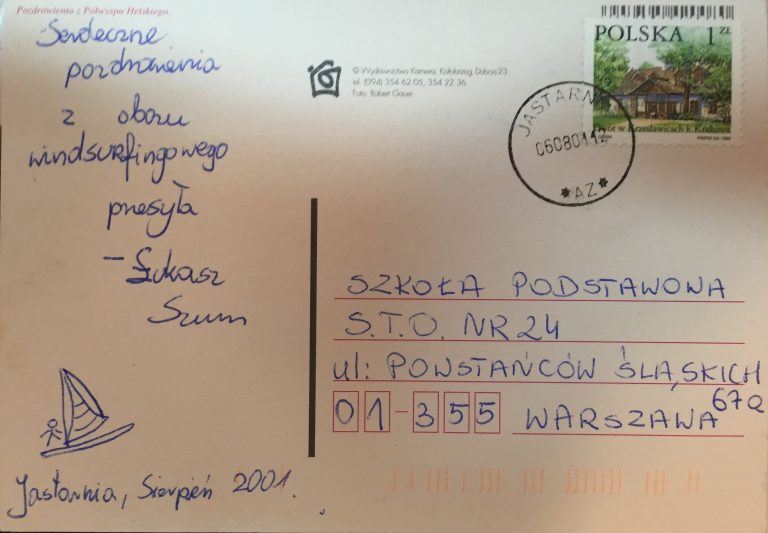 Pozdrowienia z Półwyspu Helskiego.
Serdeczne
pozdrowienia
z obozu
windsurfingowego
przesyła
– Łukasz
Szum
Jastarnia, Sierpień 2001.
© Wydawnictwo Kamera, Kołobrzeg, Dubois 23
tel. (094) 354 62 05, 354 22 36
Foto: Robert Gauer.
POLSKA 1 ZŁ
Dwór w Krzesławicach k. Krakowa
JASTARNIA
060801 12
*AZ*
SZKOŁA PODSTAWOWA
S.T.O. NR 24
ul: POWSTAŃCÓW ŚLĄSKICH
67a
01-355 WARSZAWA